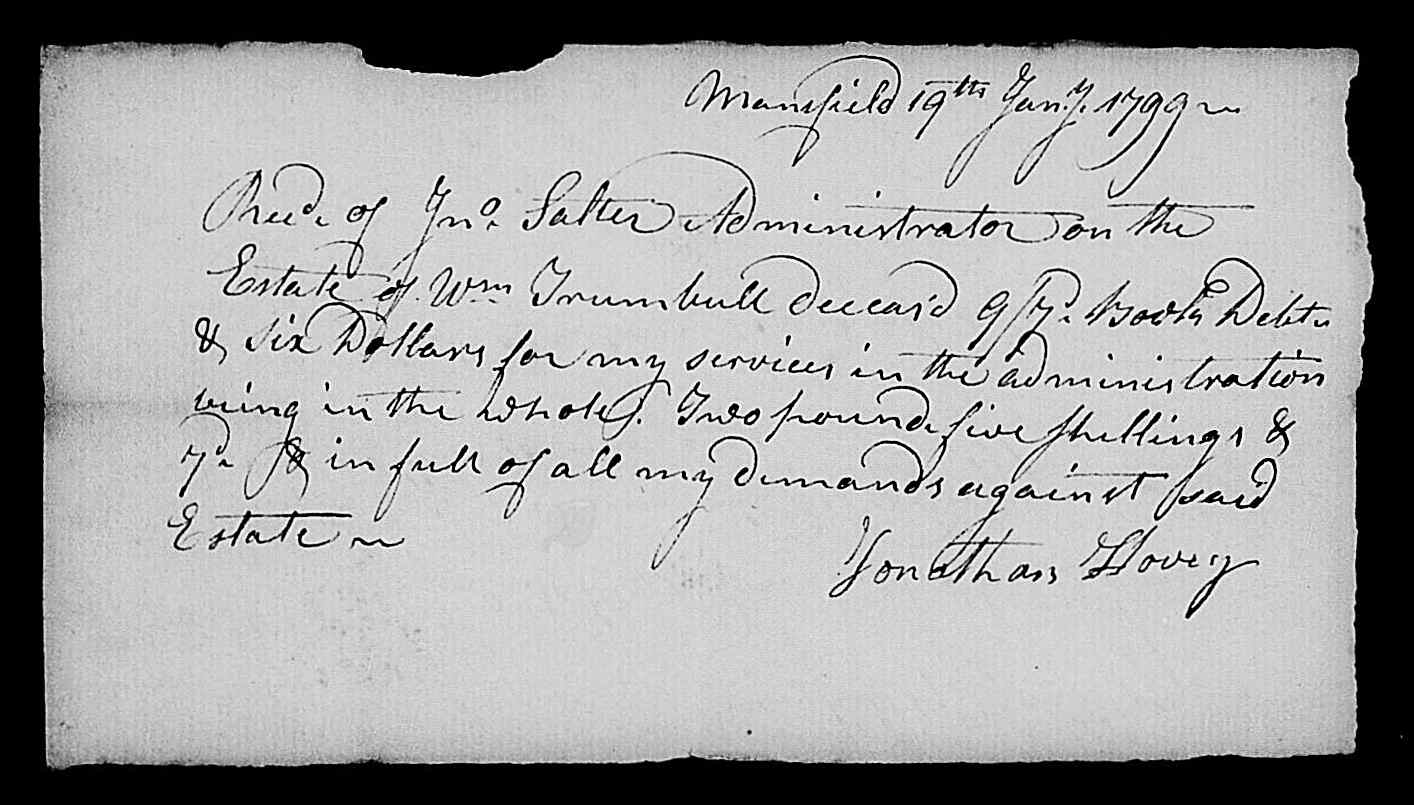 Mansfield 19th Jany. 1799
Recd. of Jno. Salter Administrator on the
Estate of Wm Trumbull deceas'd 9/7d. Book Debt
& six Dollars for my services in the administration
being in the whole Two pound five shillings &
7d. & in full of all my demands against said
Estate
Jonathan Hovey